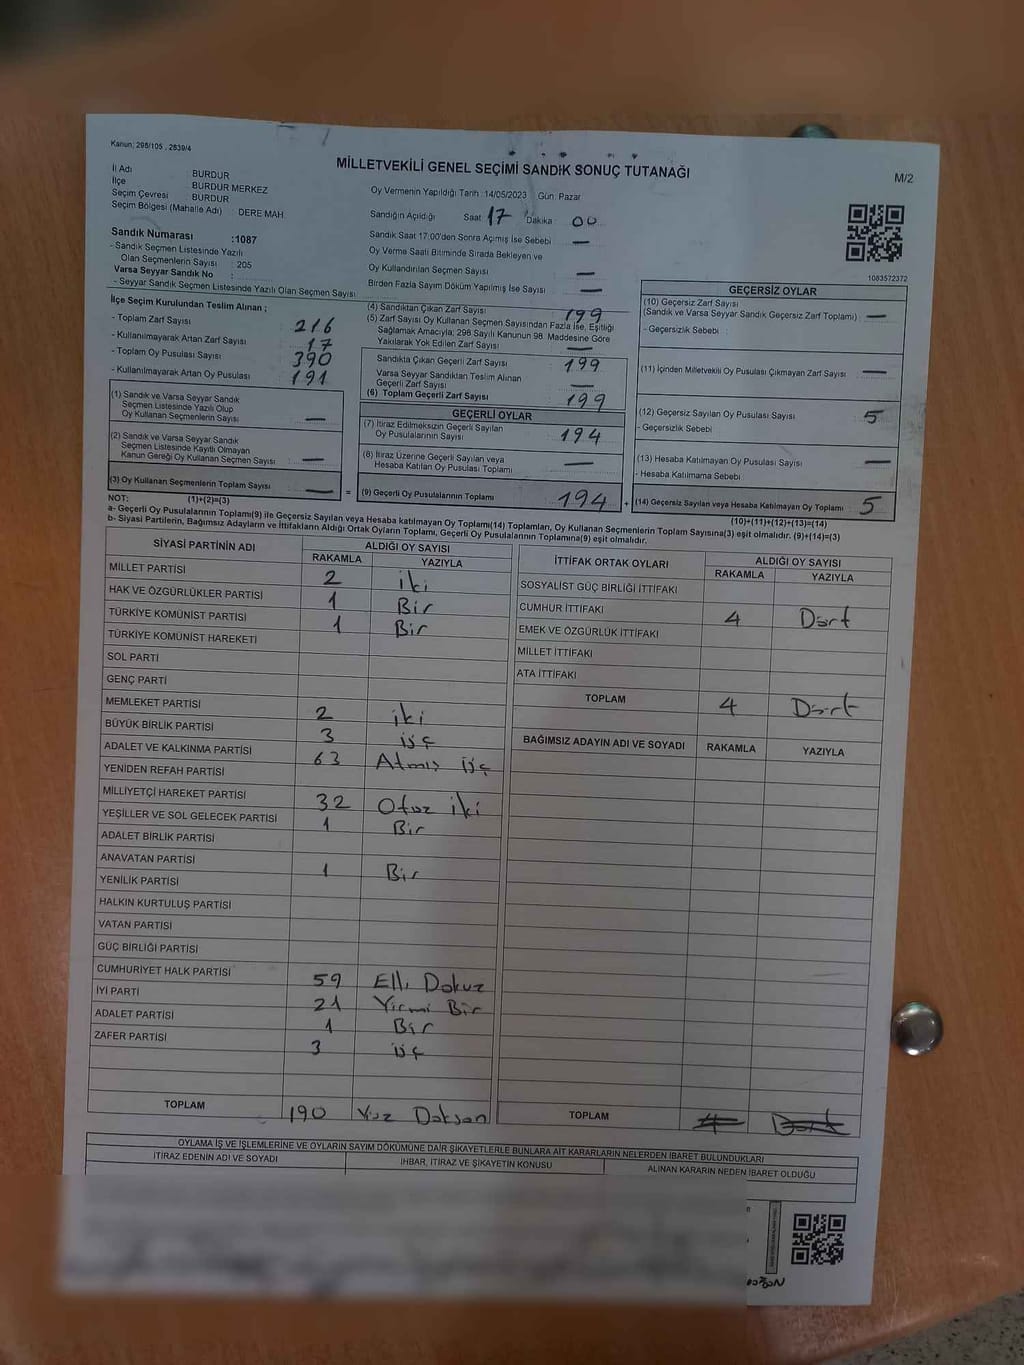 Kanun: 298/105 , 2839/4
MİLLETVEKİLİ GENEL SEÇİMİ SANDIK SONUÇ TUTANAĞI
M/2
İl Adı BURDUR
İlçe BURDUR MERKEZ
Seçim Çevresi BURDUR
Seçim Bölgesi (Mahalle Adı) : DERE MAH
Sandık Numarası :1087
- Sandık Seçmen Listesinde Yazılı
Olan Seçmenlerin Sayısı : 205
Varsa Seyyar Sandık No :
- Seyyar Sandık Seçmen Listesinde Yazılı Olan Seçmen Sayısı
Oy Vermenin Yapıldığı Tarih :14/05/2023 Gün: Pazar
Sandığın Açıldığı Saat 17 Dakika : 00
Sandık Saat 17:00'den Sonra Açılmış İse Sebebi —
Oy Verme Saati Bitiminde Sırada Bekleyen ve
Oy Kullandırılan Seçmen Sayısı —
Birden Fazla Sayım Döküm Yapılmış İse Sayısı —
1083572372
İlçe Seçim Kurulundan Teslim Alınan ;
- Toplam Zarf Sayısı 216
- Kullanılmayarak Artan Zarf Sayısı 17
- Toplam Oy Pusulası Sayısı 390
- Kullanılmayarak Artan Oy Pusulası 191
(1) Sandık ve Varsa Seyyar Sandık
Seçmen Listesinde Yazılı Olup
Oy Kullanan Seçmenlerin Sayısı —
(2) Sandık ve Varsa Seyyar Sandık
Seçmen Listesinde Kayıtlı Olmayan
Kanun Gereği Oy Kullanan Seçmen Sayısı —
(3) Oy Kullanan Seçmenlerin Toplam Sayısı —
(4) Sandıktan Çıkan Zarf Sayısı 199
(5) Zarf Sayısı Oy Kullanan Seçmen Sayısından Fazla İse, Eşitliği
Sağlamak Amacıyla; 298 Sayılı Kanunun 98. Maddesine Göre
Yakılarak Yok Edilen Zarf Sayısı —
Sandıkta Çıkan Geçerli Zarf Sayısı : 199
Varsa Seyyar Sandıktan Teslim Alınan
Geçerli Zarf Sayısı : —
(6) Toplam Geçerli Zarf Sayısı : 199
GEÇERLİ OYLAR
(7) İtiraz Edilmeksizin Geçerli Sayılan
Oy Pusulalarının Sayısı : 194
(8) İtiraz Üzerine Geçerli Sayılan veya
Hesaba Katılan Oy Pusulası Toplamı : —
= (9) Geçerli Oy Pusulalarının Toplamı : 194 +
GEÇERSİZ OYLAR
(10) Geçersiz Zarf Sayısı
(Sandık ve Varsa Seyyar Sandık Geçersiz Zarf Toplamı) : —
- Geçersizlik Sebebi :
(11) İçinden Milletvekili Oy Pusulası Çıkmayan Zarf Sayısı : —
(12) Geçersiz Sayılan Oy Pusulası Sayısı : 5
- Geçersizlik Sebebi
(13) Hesaba Katılmayan Oy Pusulası Sayısı : —
- Hesaba Katılmama Sebebi :
(14) Geçersiz Sayılan veya Hesaba Katılmayan Oy Toplamı : 5
NOT: (1)+(2)=(3)
(10)+(11)+(12)+(13)=(14)
a- Geçerli Oy Pusulalarının Toplamı(9) ile Geçersiz Sayılan veya Hesaba katılmayan Oy Toplamı(14) Toplamları, Oy Kullanan Seçmenlerin Toplam Sayısına(3) eşit olmalıdır. (9)+(14)=(3)
b- Siyasi Partilerin, Bağımsız Adayların ve İttifakların Aldığı Ortak Oyların Toplamı, Geçerli Oy Pusulalarının Toplamına(9) eşit olmalıdır.
SİYASİ PARTİNİN ADI ALDIĞI OY SAYISI
RAKAMLA YAZIYLA
MİLLET PARTİSİ 2 iki
HAK VE ÖZGÜRLÜKLER PARTİSİ 1 Bir
TÜRKİYE KOMÜNİST PARTİSİ 1 Bir
TÜRKİYE KOMÜNİST HAREKETİ
SOL PARTİ
GENÇ PARTİ
MEMLEKET PARTİSİ 2 iki
BÜYÜK BİRLİK PARTİSİ 3 üç
ADALET VE KALKINMA PARTİSİ 63 Atmış üç
YENİDEN REFAH PARTİSİ
MİLLİYETÇİ HAREKET PARTİSİ 32 Otuz iki
YEŞİLLER VE SOL GELECEK PARTİSİ 1 Bir
ADALET BİRLİK PARTİSİ
ANAVATAN PARTİSİ 1 Bir
YENİLİK PARTİSİ
HALKIN KURTULUŞ PARTİSİ
VATAN PARTİSİ
GÜÇ BİRLİĞİ PARTİSİ
CUMHURİYET HALK PARTİSİ 59 Elli Dokuz
İYİ PARTİ 21 Yirmi Bir
ADALET PARTİSİ 1 Bir
ZAFER PARTİSİ 3 üç
TOPLAM 190 Yüz Doksan
İTTİFAK ORTAK OYLARI ALDIĞI OY SAYISI
RAKAMLA YAZIYLA
SOSYALİST GÜÇ BİRLİĞİ İTTİFAKI
CUMHUR İTTİFAKI 4 Dört
EMEK VE ÖZGÜRLÜK İTTİFAKI
MİLLET İTTİFAKI
ATA İTTİFAKI
TOPLAM 4 Dört
BAĞIMSIZ ADAYIN ADI VE SOYADI RAKAMLA YAZIYLA
TOPLAM 4 Dört
OYLAMA İŞ VE İŞLEMLERİNE VE OYLARIN SAYIM DÖKÜMÜNE DAİR ŞİKAYETLERLE BUNLARA AİT KARARLARIN NELERDEN İBARET BULUNDUKLARI
İTİRAZ EDENİN ADI VE SOYADI İHBAR, İTİRAZ VE ŞİKAYETİN KONUSU ALINAN KARARIN NEDEN İBARET OLDUĞU